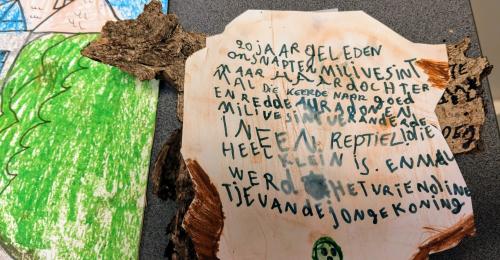 20 JAAR GELEDEN
ONSNAPTE MILIVESINT
MAAR HAAR DOCHTER
MAL DIE KEERDE NAAR GOED
EN REDDE AURADON EN
MILIVESINT VERANDERDE
IN EEN REPTIEL DIE
HEEL KLEIN IS. EN MAL
WERD HET VRIENDINE
TJE VAN DE JONGE KONING